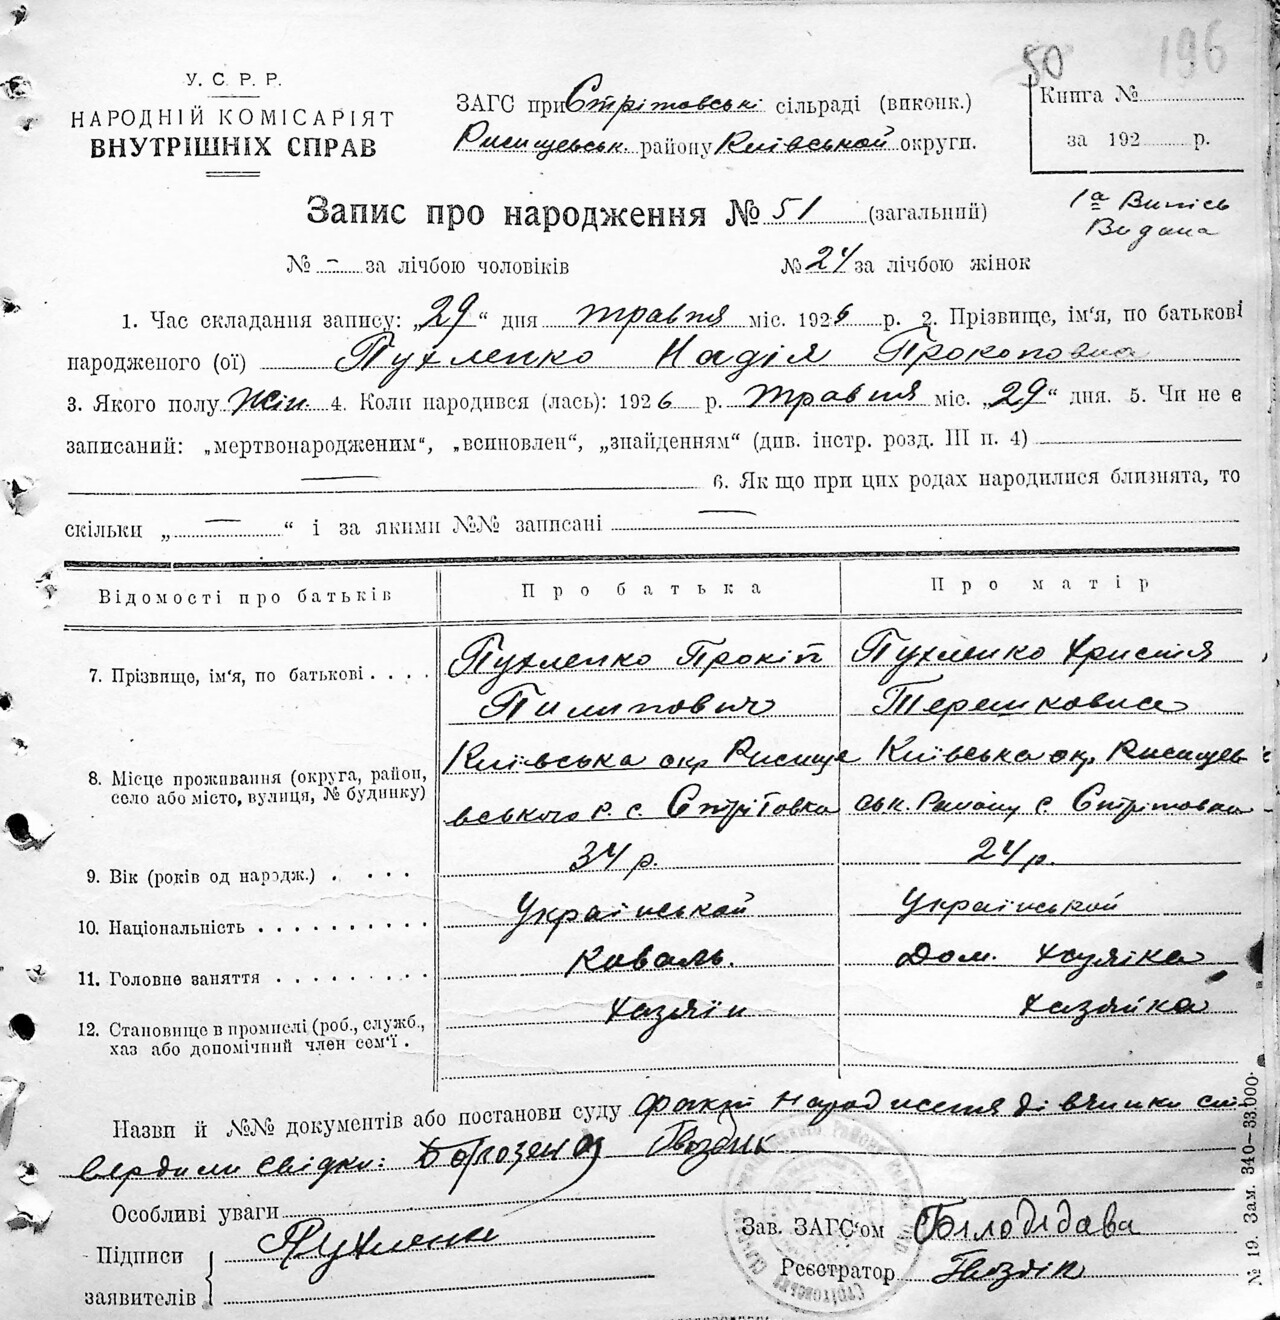 50 196
У. С. Р. Р.
НАРОДНІЙ КОМІСАРІЯТ
ВНУТРІШНІХ СПРАВ
ЗАГС при Стрітовські сільраді (виконк.)
Рисищевськ. району Київської округи.
Книга №
за 192 р.
Запис про народження № 51 (загальний)
1а Випись
Видана
№ - за лічбою чоловіків № 24 за лічбою жінок
1. Час складання запису: „29“ дня травня міс. 1926 р. 2. Прізвище, ім'я, по батькові
народженого (ої) Пухленко Надія Прокоповна
3. Якого полу Жін. 4. Коли народився (лась): 1926 р. травня міс. „29“ дня. 5. Чи не є
записаний: „мертвонародженим“, „всиновлен“, „знайденням“ (див. інстр. розд. III п. 4)
— 6. Як що при цих родах народилися близнята, то
скільки „—“ і за якими №№ записані —
Відомості про батьків Про батька Про матір
7. Прізвище, ім'я, по батькові . . . . Пухленко Прокіп Пухленко Христя
Пилипович Терешковна
8. Місце проживання (округа, район, село або місто, вулиця, № будинку) Київська окр Рисище Київська окр Рисищев
вського р. с. Стрітовка ськ. Району с. Стрітовка
9. Вік (років од народж.) . . . . 34 р. 24 р.
10. Національність . . . . . . . . . . Української Української
11. Головне заняття . . . . . . . . Коваль. Дом. Хазяіка
12. Становище в промислі (роб., служб., хаз або допомічний член сем'ї . Хазяїн Хазяйка
Назви й №№ документів або постанови суду факт народження дівчинки ст
вердили свідки: Гвоздик
Особливі уваги
Підписи Пухленк Зав. ЗАГС'ом Білодідава
заявителів Реєстратор Гвоздік
№ 19. Зам. 340–33.000.